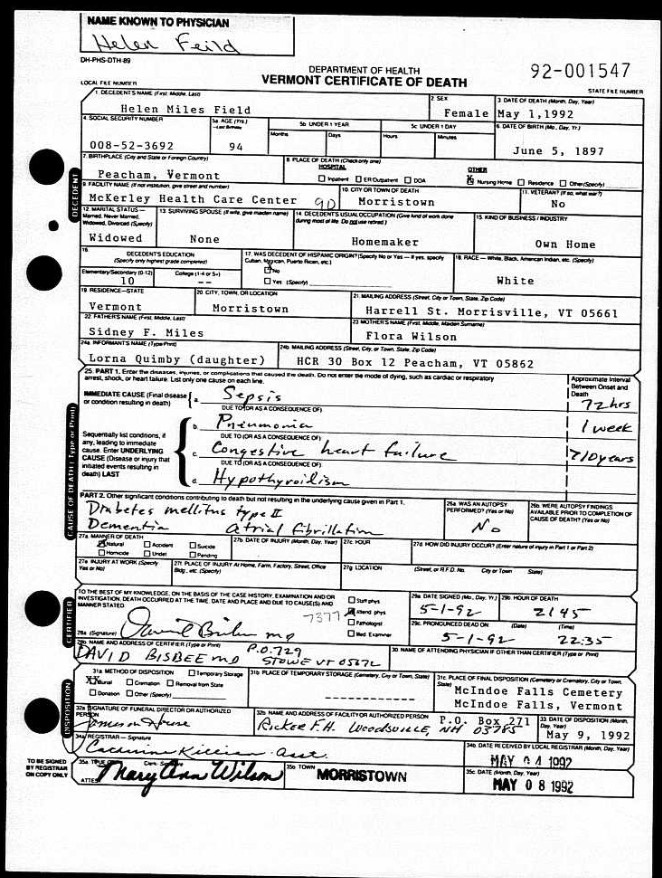 NAME KNOWN TO PHYSICIAN
Helen Feild
DH-PHS-DTH-89
DEPARTMENT OF HEALTH
92-001547
VERMONT CERTIFICATE OF DEATH
LOCAL FILE NUMBER
STATE FILE NUMBER
1 DECEDENT'S NAME (First, Middle, Last)
2 SEX
3 DATE OF DEATH (Month, Day, Year)
Helen Miles Field
Female
May 1,1992
4. SOCIAL SECURITY NUMBER
5a AGE (Yrs.)
5b UNDER 1 YEAR
5c UNDER 1 DAY
6 DATE OF BIRTH (Mo., Day, Yr.)
Months
Days
Hours
Minutes
008-52-3692
94
June 5, 1897
7. BIRTHPLACE (City and State or Foreign Country)
8. PLACE OF DEATH (Check only one)
HOSPITAL
OTHER
Peachham, Vermont
Inpatient
ER/Outpatient
DOA
Nursing Home
Residence
Other (Specify)
9. FACILITY NAME (If not institution, give street and number)
10. CITY OR TOWN OF DEATH
11. VETERAN? (If so, what war?)
McKerley Health Care Center
Morristown
No
DECEDENT
12. MARITAL STATUS — Married, Never Married, Widowed, Divorced (Specify)
13 SURVIVING SPOUSE (If wife, give maiden name)
14. DECEDENT'S USUAL OCCUPATION (Give kind of work done during most of life. Do not use retired.)
15. KIND OF BUSINESS / INDUSTRY
Widowed
None
Homemaker
Own Home
16
DECEDENT'S EDUCATION
(Specify only highest grade completed)
17. WAS DECEDENT OF HISPANIC ORIGIN? (Specify No or Yes — If yes, specify Cuban, Mexican, Puerto Rican, etc.)
18. RACE — White, Black, American Indian, etc. (Specify)
Elementary/Secondary (0-12)
College (1-4 or 5+)
No
Yes (Specify)
10
--
White
19 RESIDENCE—STATE
20. CITY, TOWN, OR LOCATION
21. MAILING ADDRESS (Street, City or Town, State, Zip Code)
Vermont
Morristown
Harrell St. Morrisville, VT 05661
22 FATHER'S NAME (First, Middle, Last)
23 MOTHER'S NAME (First, Middle, Maiden Surname)
Sidney F. Miles
Flora Wilson
24a INFORMANT'S NAME (Type/Print)
24b MAILING ADDRESS (Street, City or Town, State, Zip Code)
Lorna Quimby (daughter)
HCR 30 Box 12 Peacham, VT 05862
25. PART 1. Enter the diseases, injuries, or complications that caused the death. Do not enter the mode of dying, such as cardiac or respiratory
arrest, shock, or heart failure. List only one cause on each line.
Approximate Interval Between Onset and Death
IMMEDIATE CAUSE (Final disease or condition resulting in death)
a. Sepsis
72 hrs
DUE TO (OR AS A CONSEQUENCE OF)
b. Pneumonia
1 week
Sequentially list conditions, if any, leading to immediate cause. Enter UNDERLYING CAUSE (Disease or injury that initiated events resulting in death) LAST
DUE TO (OR AS A CONSEQUENCE OF)
c. Congestive heart failure
>10 years
DUE TO (OR AS A CONSEQUENCE OF)
d. Hypothyroidism
CAUSE OF DEATH (Type or Print)
PART 2. Other significant conditions contributing to death but not resulting in the underlying cause given in Part 1.
26a WAS AN AUTOPSY PERFORMED? (Yes or No)
26b WERE AUTOPSY FINDINGS AVAILABLE PRIOR TO COMPLETION OF CAUSE OF DEATH? (Yes or No)
Diabetes mellitus type II
Dementia
atrial fibrillation
No
27a. MANNER OF DEATH
27b DATE OF INJURY (Month, Day, Year)
27c. HOUR
27d HOW DID INJURY OCCUR? (Enter nature of injury in Part 1 or Part 2)
Natural
Accident
Suicide
Homicide
Undet
Pending
27e INJURY AT WORK (Specify Yes or No)
27f. PLACE OF INJURY At Home, Farm, Factory, Street, Office Bldg., etc. (Specify)
27g LOCATION
(Street, or R.F.D. No. City or Town State)
TO THE BEST OF MY KNOWLEDGE, ON THE BASIS OF THE CASE HISTORY, EXAMINATION AND/OR
INVESTIGATION, DEATH OCCURRED AT THE TIME, DATE AND PLACE AND DUE TO CAUSE(S) AND
MANNER STATED
Staff phys
Attend phys
Pathologist
Med. Examiner
29a. DATE SIGNED (Mo., Day, Yr.)
29b. HOUR OF DEATH
5-1-92
2145
CERTIFIER
28a (Signature)
29c. PRONOUNCED DEAD ON
(Date)
(Time)
5-1-92
22:35
28b NAME AND ADDRESS OF CERTIFIER (Type or Print)
30 NAME OF ATTENDING PHYSICIAN IF OTHER THAN CERTIFIER (Type or Print)
DAVID BISBEE MD
P.O. 729
STOWE VT 05672
DISPOSITION
31a METHOD OF DISPOSITION
Temporary Storage
Burial
Cremation
Removal from State
Donation
Other (Specify)
31b PLACE OF TEMPORARY STORAGE (Cemetery, City or Town, State)
31c PLACE OF FINAL DISPOSITION (Cemetery or Crematory, City or Town, State)
McIndoe Falls Cemetery
McIndoe Falls, Vermont
32a SIGNATURE OF FUNERAL DIRECTOR OR AUTHORIZED PERSON
32b NAME AND ADDRESS OF FACILITY OR AUTHORIZED PERSON
P.O. Box 271
Ricker F.H. Woodsville, NH 03785
33 DATE OF DISPOSITION (Month, Day, Year)
May 9, 1992
34a REGISTRAR — Signature
34b DATE RECEIVED BY LOCAL REGISTRAR (Month, Day, Year)
MAY 04 1992
TO BE SIGNED
BY REGISTRAR
ON COPY ONLY
Mary Ann Wilson
35b TOWN
MORRISTOWN
35c. DATE (Month, Day, Year)
MAY 08 1992